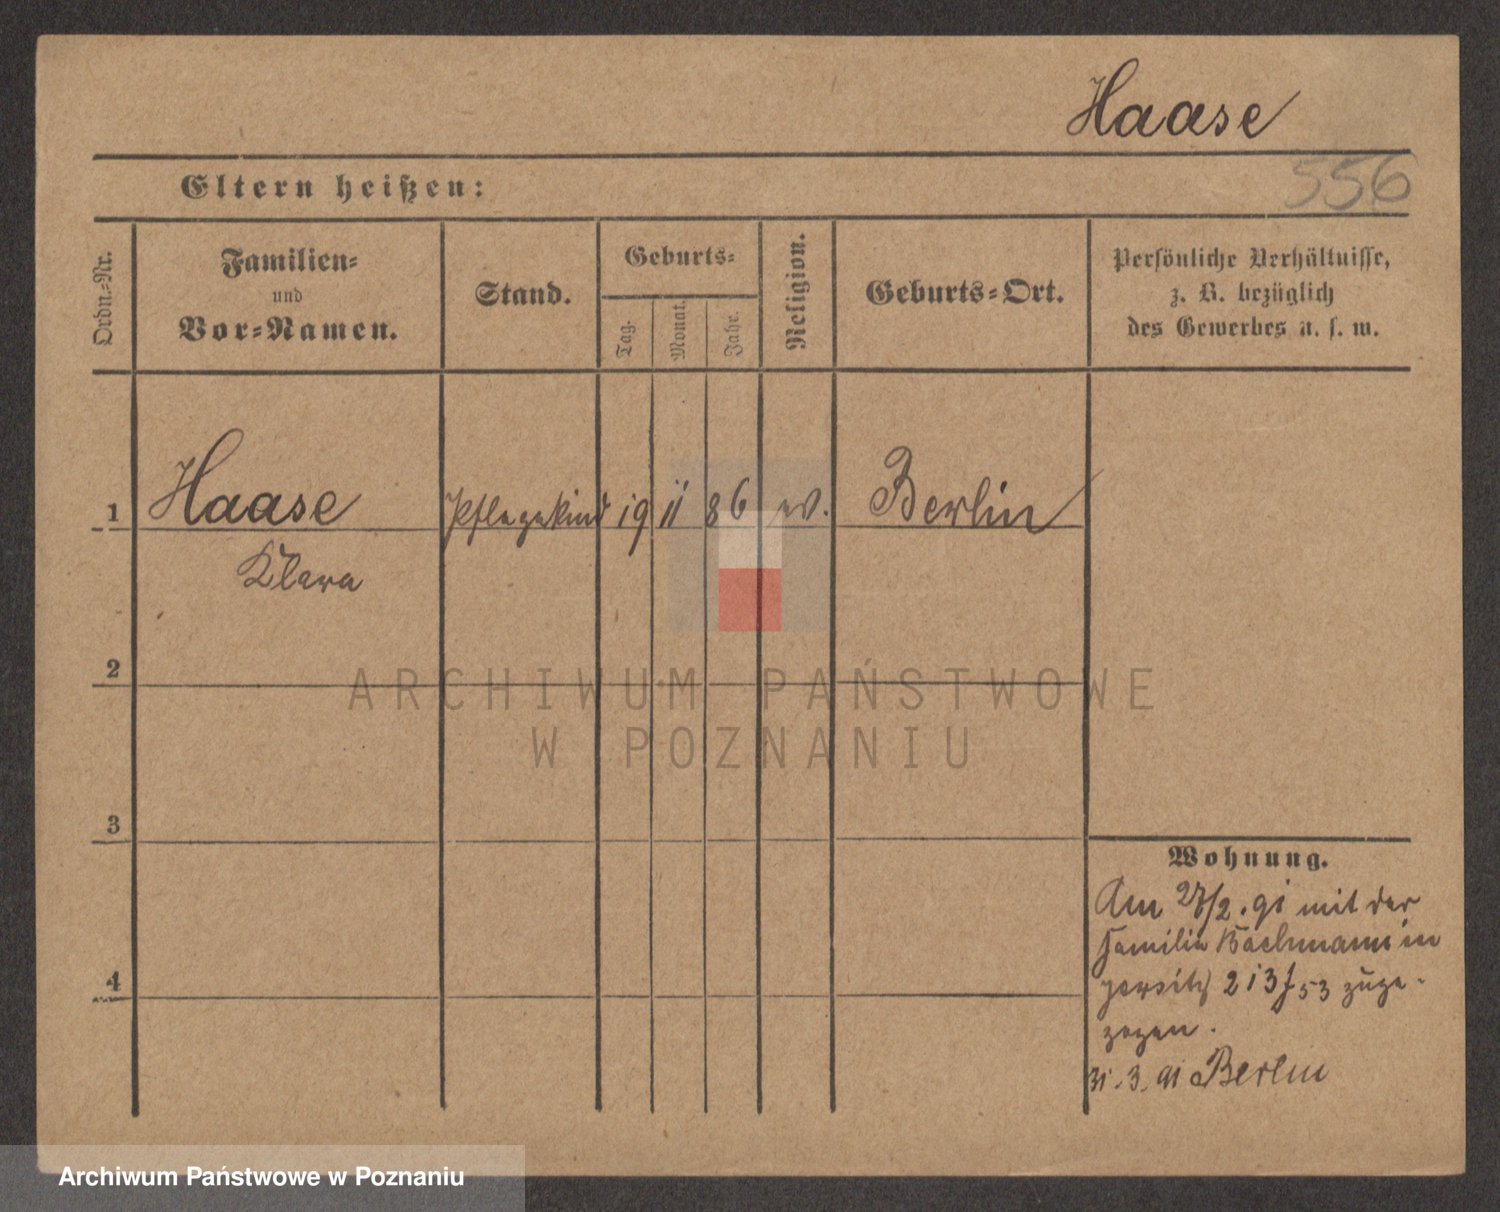 Haase
556
Eltern heißen:
Ordn.-Nr.
Familien-
und
Vor-Namen.
Stand.
Geburts-
Tag.
Monat.
Jahr.
Religion.
Geburts-Ort.
Persönliche Verhältnisse,
z. B. bezüglich
des Gewerbes u. s. w.
1
Haase
Pflegekind
19
11
86
ev.
Berlin
Klara
2
ARCHIWUM PAŃSTWOWE
W POZNANIU
3
Wohnung.
Am 27/2. 91 mit der
Familie Bachmann in
Jersitz 213 53 zuge-
zogen.
4
31. 3. 91 Berlin
Archiwum Państwowe w Poznaniu